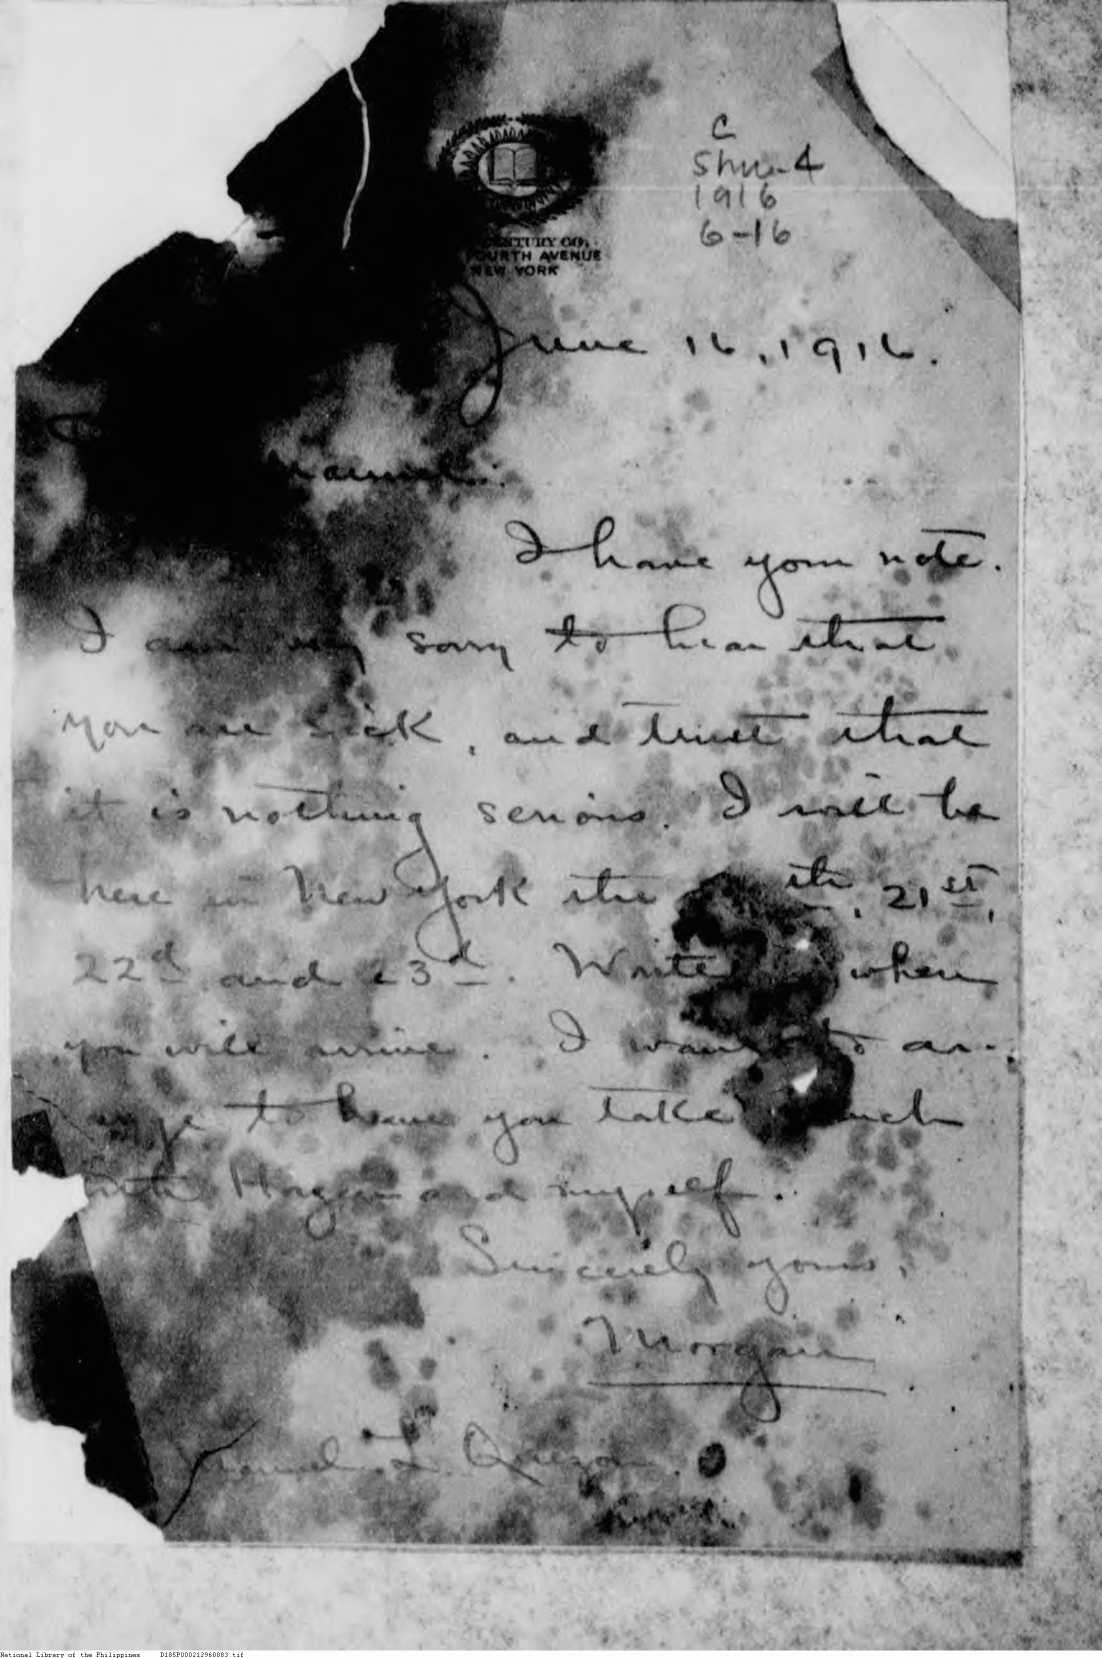 C
Shu-4
1916
6-16
CENTURY CO.
FOURTH AVENUE
NEW YORK
June 16, 1916.
Manuel:
I have your note.
I am very sorry to hear that
you are sick, and trust that
it is nothing serious. I will be
here in New York the th, 21st,
22d and 23d. Write when
you will arrive. I want to ar-
range to have you take lunch
with and myself.
Sincerely yours,
Morgan
Manuel L. Quezon
National Library of the Philippines D185P000212960883.tif